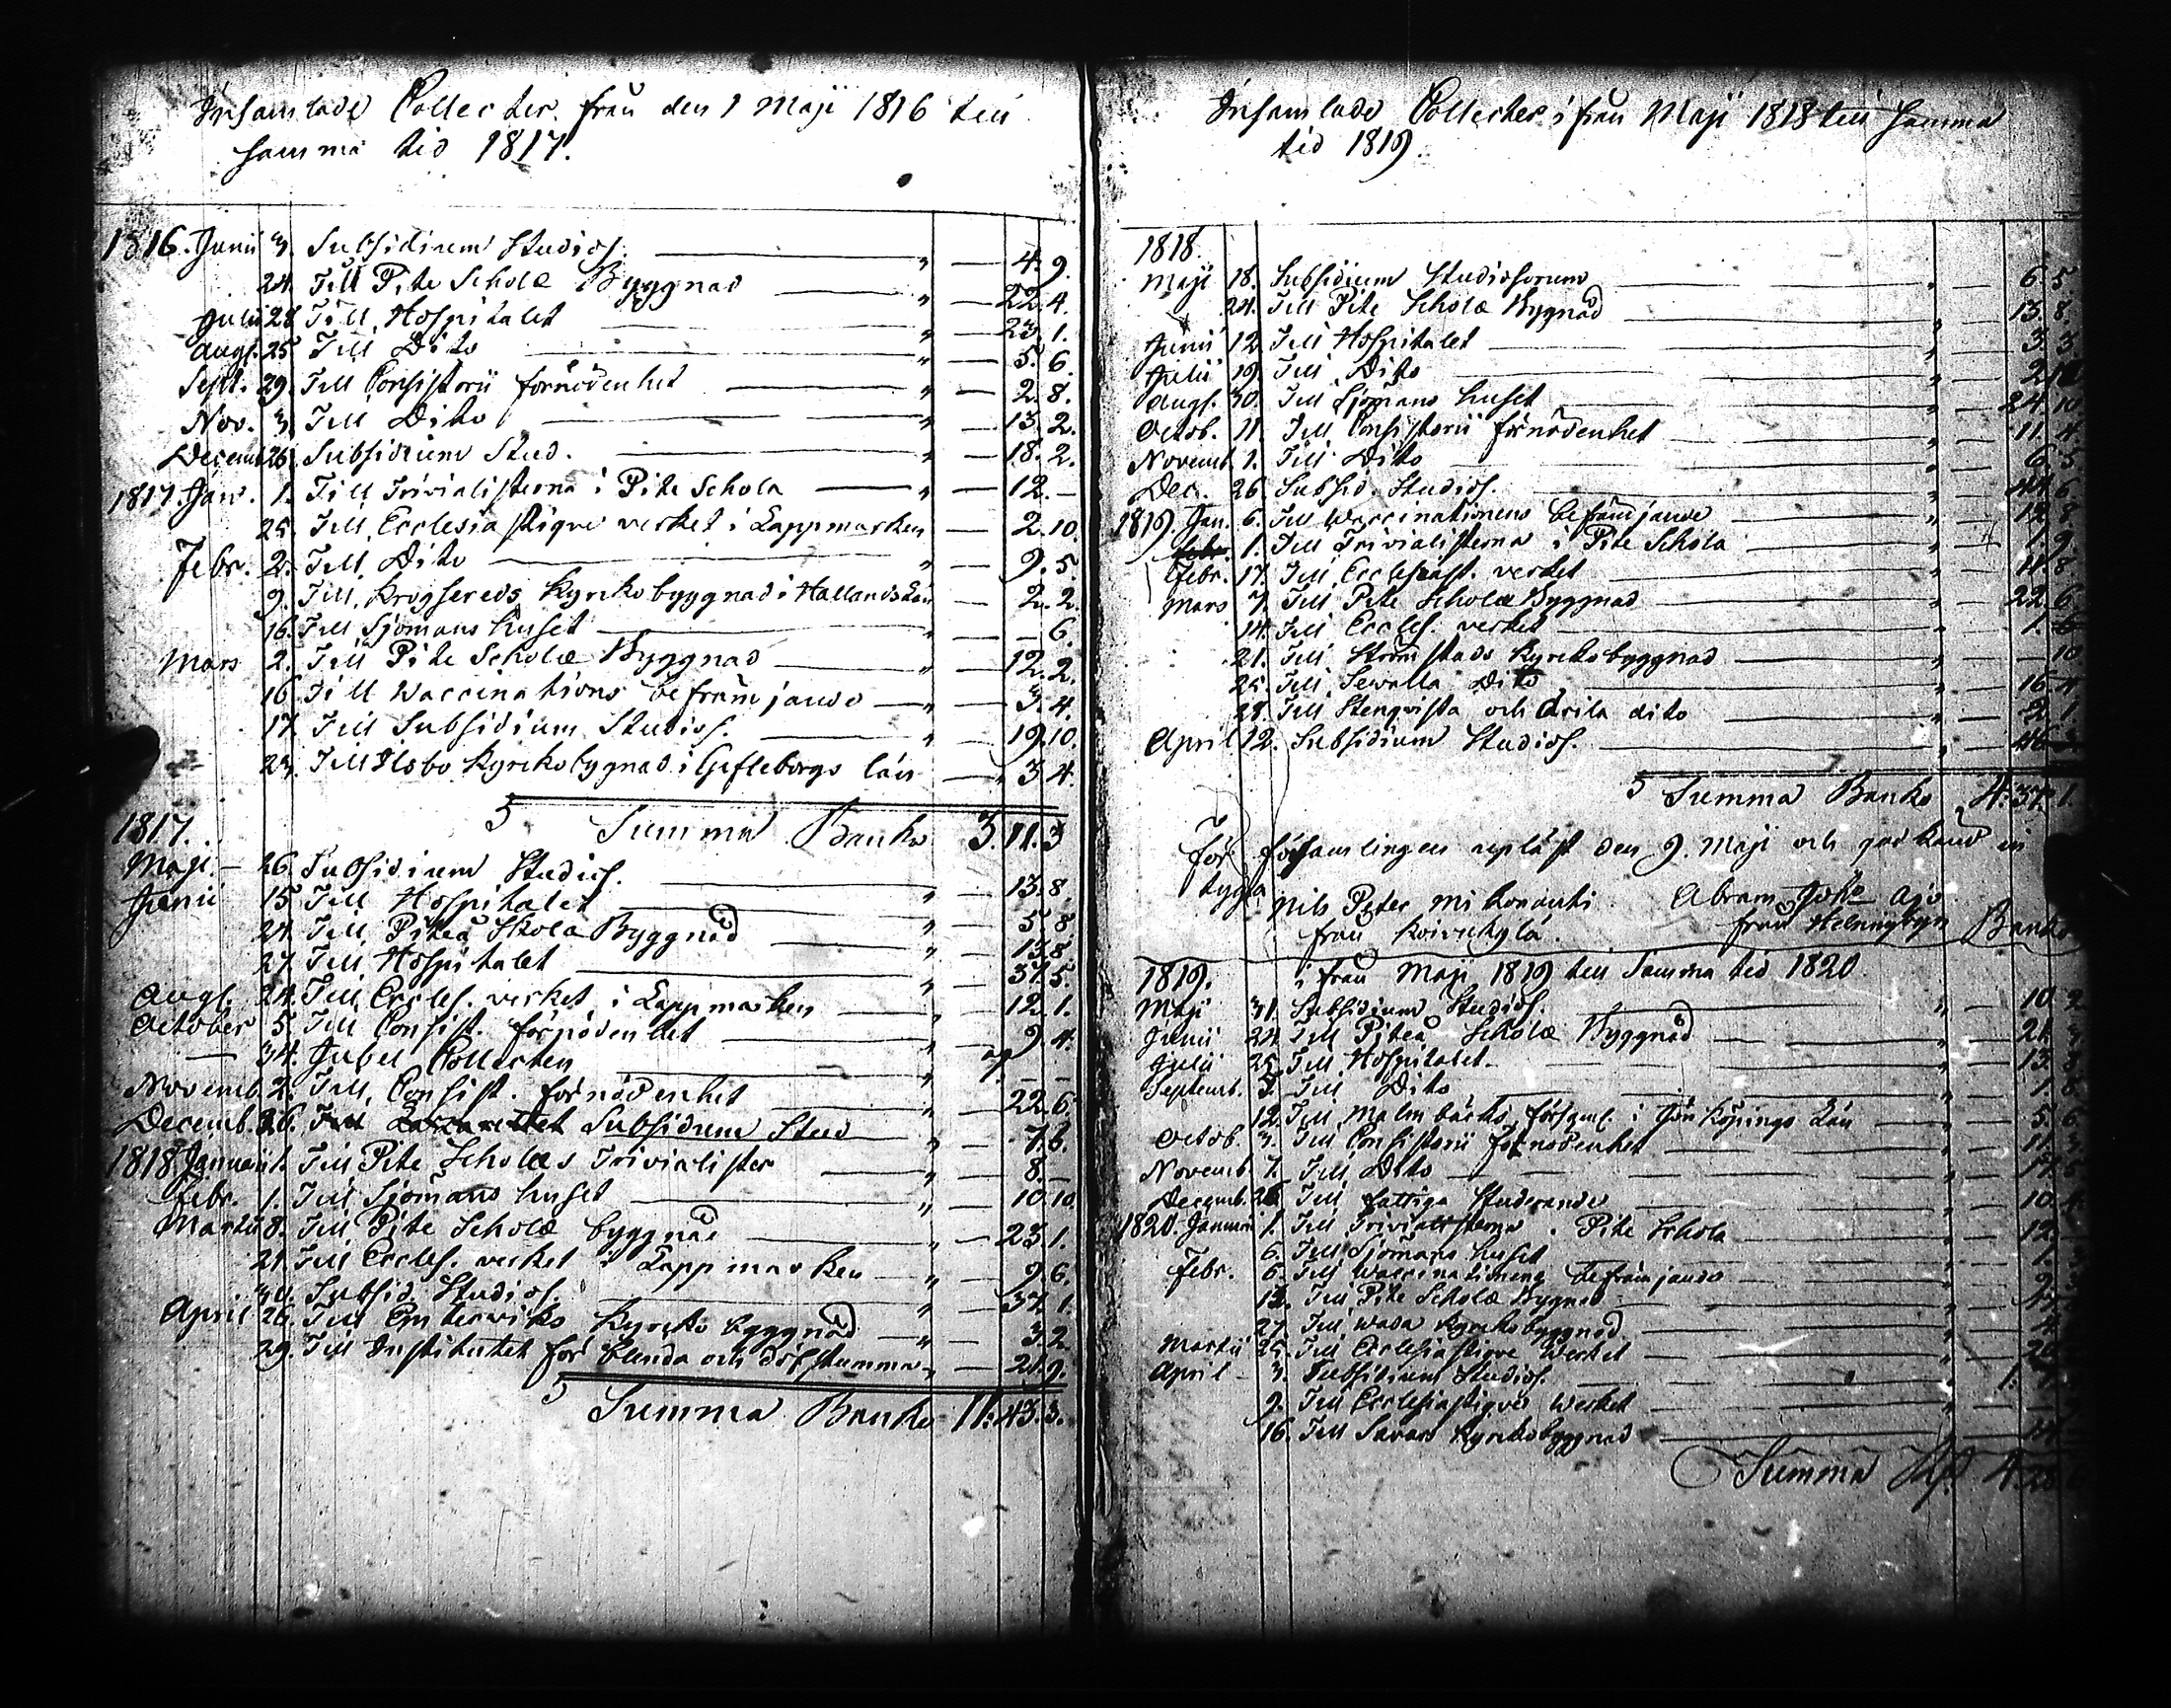 Insamlade Collecter från den 1 Maji 1816 till
samma tid 1817.
1816. Junii 3. Subsidium Studios. " — 4. 9.
24. Till Pite Scholæ Byggnad " — 22. 4.
Julii 28 Till Hospitalet " — 23. 1.
Augs. 25 Till Dito " — 5. 6.
Sept. 29. Till Consistorii förnödenhet " — 2. 8.
Nov. 3. Till Dito " — 13. 2.
Decemb. 26. Subsidium Stud. " — 18. 2.
1817. Jan. 1. Till Trivialisterna i Pite Schola " — 12. —
25. Till Ecclesiastique verket i Lappmarken " — 2. 10.
Febr. 2. Till Dito " — 9. 5.
9. Till Kyrkobyggnad i Hallands Län — 2. 2.
16. Till Sjömans huset " — — 6.
Mars 2. Till Pite Scholæ Byggnad " — 12. 2.
16. Till Waccinations befrämjande " — 3. 4.
17. Till Subsidium Studios. " — 19. 10.
23. Till Kyrkobygnad i Gefleborgs län — " 3. 4.
Summa Banko 3. 11. 3
1817.
Maji — 26. Subsidium Studios. " — 13. 8.
Junii 15 Till Hospitalet " — 5. 8
24. Till Piteå Skola Byggnad " — 13. 8
27. Till Hospitalet " — 37. 5.
Augs. 24. Till Eccles. verket i Lappmarken " — 12. 1.
October 5. Till Consist. förnödenhet " — 9. 4.
— Jubel Collecten " 7. — —
Novemb. 2. Till Consist. förnödenhet " — 22. 6.
Decemb. 26. Till Lazarettet Subsidium Stud " — 7. 6.
1818. Januarii 1. Till Pite Scholæs Trivialister " — 8. —
Febr. 1. Till Sjömans huset " — 10. 10.
Martii 8. Till Pite Scholæ byggnad " — 23. 1.
21. Till Eccles. verket i Lappmarken " — 9. 6.
30. Subsid. Studios. " — 37. 1.
April 26. Till Kyrko byggnad " — 3. 2
29. Till Institutet för blinda och döfstumma " — 21. 9.
Summa Banko 11: 43. 3.
Insamlade Collecter ifrån Maji 1818 till samma
tid 1819.
1818.
Maji 18. Subsidium Studiosorum " — 6. 5
24. Till Pite Scholæ Bygnad " — 13. 8.
Junii 12. Till Hospitalet " — 3. 3
Julii 19. Till Dito " — 2.
Augs. 30. Till Sjömans huset " — 24. 10
Octob. 11. Till Consistorii förnödenhet " — 11. 4.
Novemb. 1. Till Dito " — 6. 5
Dec. 26. Subsid. Studios. " — 6.
1819. Jan. 6. Till Waccinationens befrämjande " — 12. 8
1. Till Trivialisterna i Pite Schola " —
Febr. 17. Till Ecclesiast. verket " — 11. 8
Mars 7. Till Pite Scholæ Byggnad " — 22. 6
14. Till Eccles. verket " — 1.
21. Till Strömstads Kyrkobyggnad " — — 10
25. Till Sewalla Dito " — 16. 4
28. Till Stenqvista och Ärila dito " — 2. 1.
April 12. Subsidium Studios. " —
Summa Banko 4: 37. 1
För församlingen upläst den 9. Maji och godkänd in
tyga
Nils Peter Mikonanti Abram Joh:
från Koivukylä. från Helsingbyn Banko
1819. ifrån Maji 1819 till Samma tid 1820
Maji 31. Subsidium Studios. " — 10. 2
Junii 24. Till Piteå Scholæ Byggnad " — 21. 3
Julii 25. Till Hospitalet " — 13. 8
Septemb. 3. Till Dito " — 1. 8.
12. Till Malmbäcks församl. i Jönköpings Län " — 5. 6
Octob. 3. Till Consistorii förnödenhet " — 11. 3
Novemb. 7. Till Dito " —
Decemb. 26 Till fattiga Studerande " — 10. 4
1820. Januari 1. Till Trivialisterna i Pite Schola " — 12.
6. Till Sjömans huset " — 1.
Febr. 6. Till Waccinationens befrämjande " —
13. Till Pite Scholæ Bygnad " —
27. Till Wada Kyrkobyggnad " —
Martii 25. Till Ecclesiastique Werket " —
April 3. Subsidium Studios. " —
9. Till Ecclesiastique Werket " —
16. Till Kyrkobyggnad
Summa